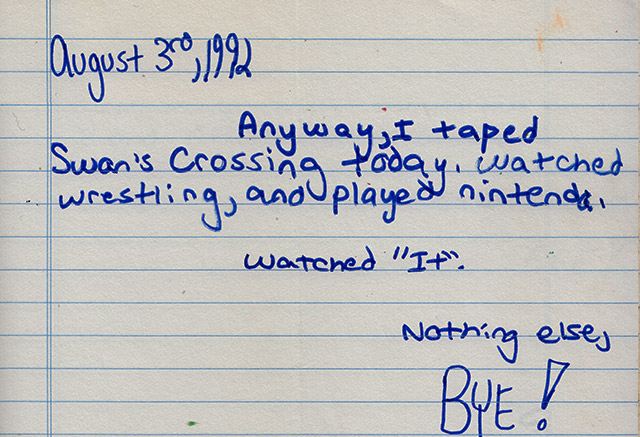 August 3rd, 1992
Anyway, I taped
Swan's Crossing today. watched
wrestling, and played nintendo.
watched "It".
Nothing else,
BYE!